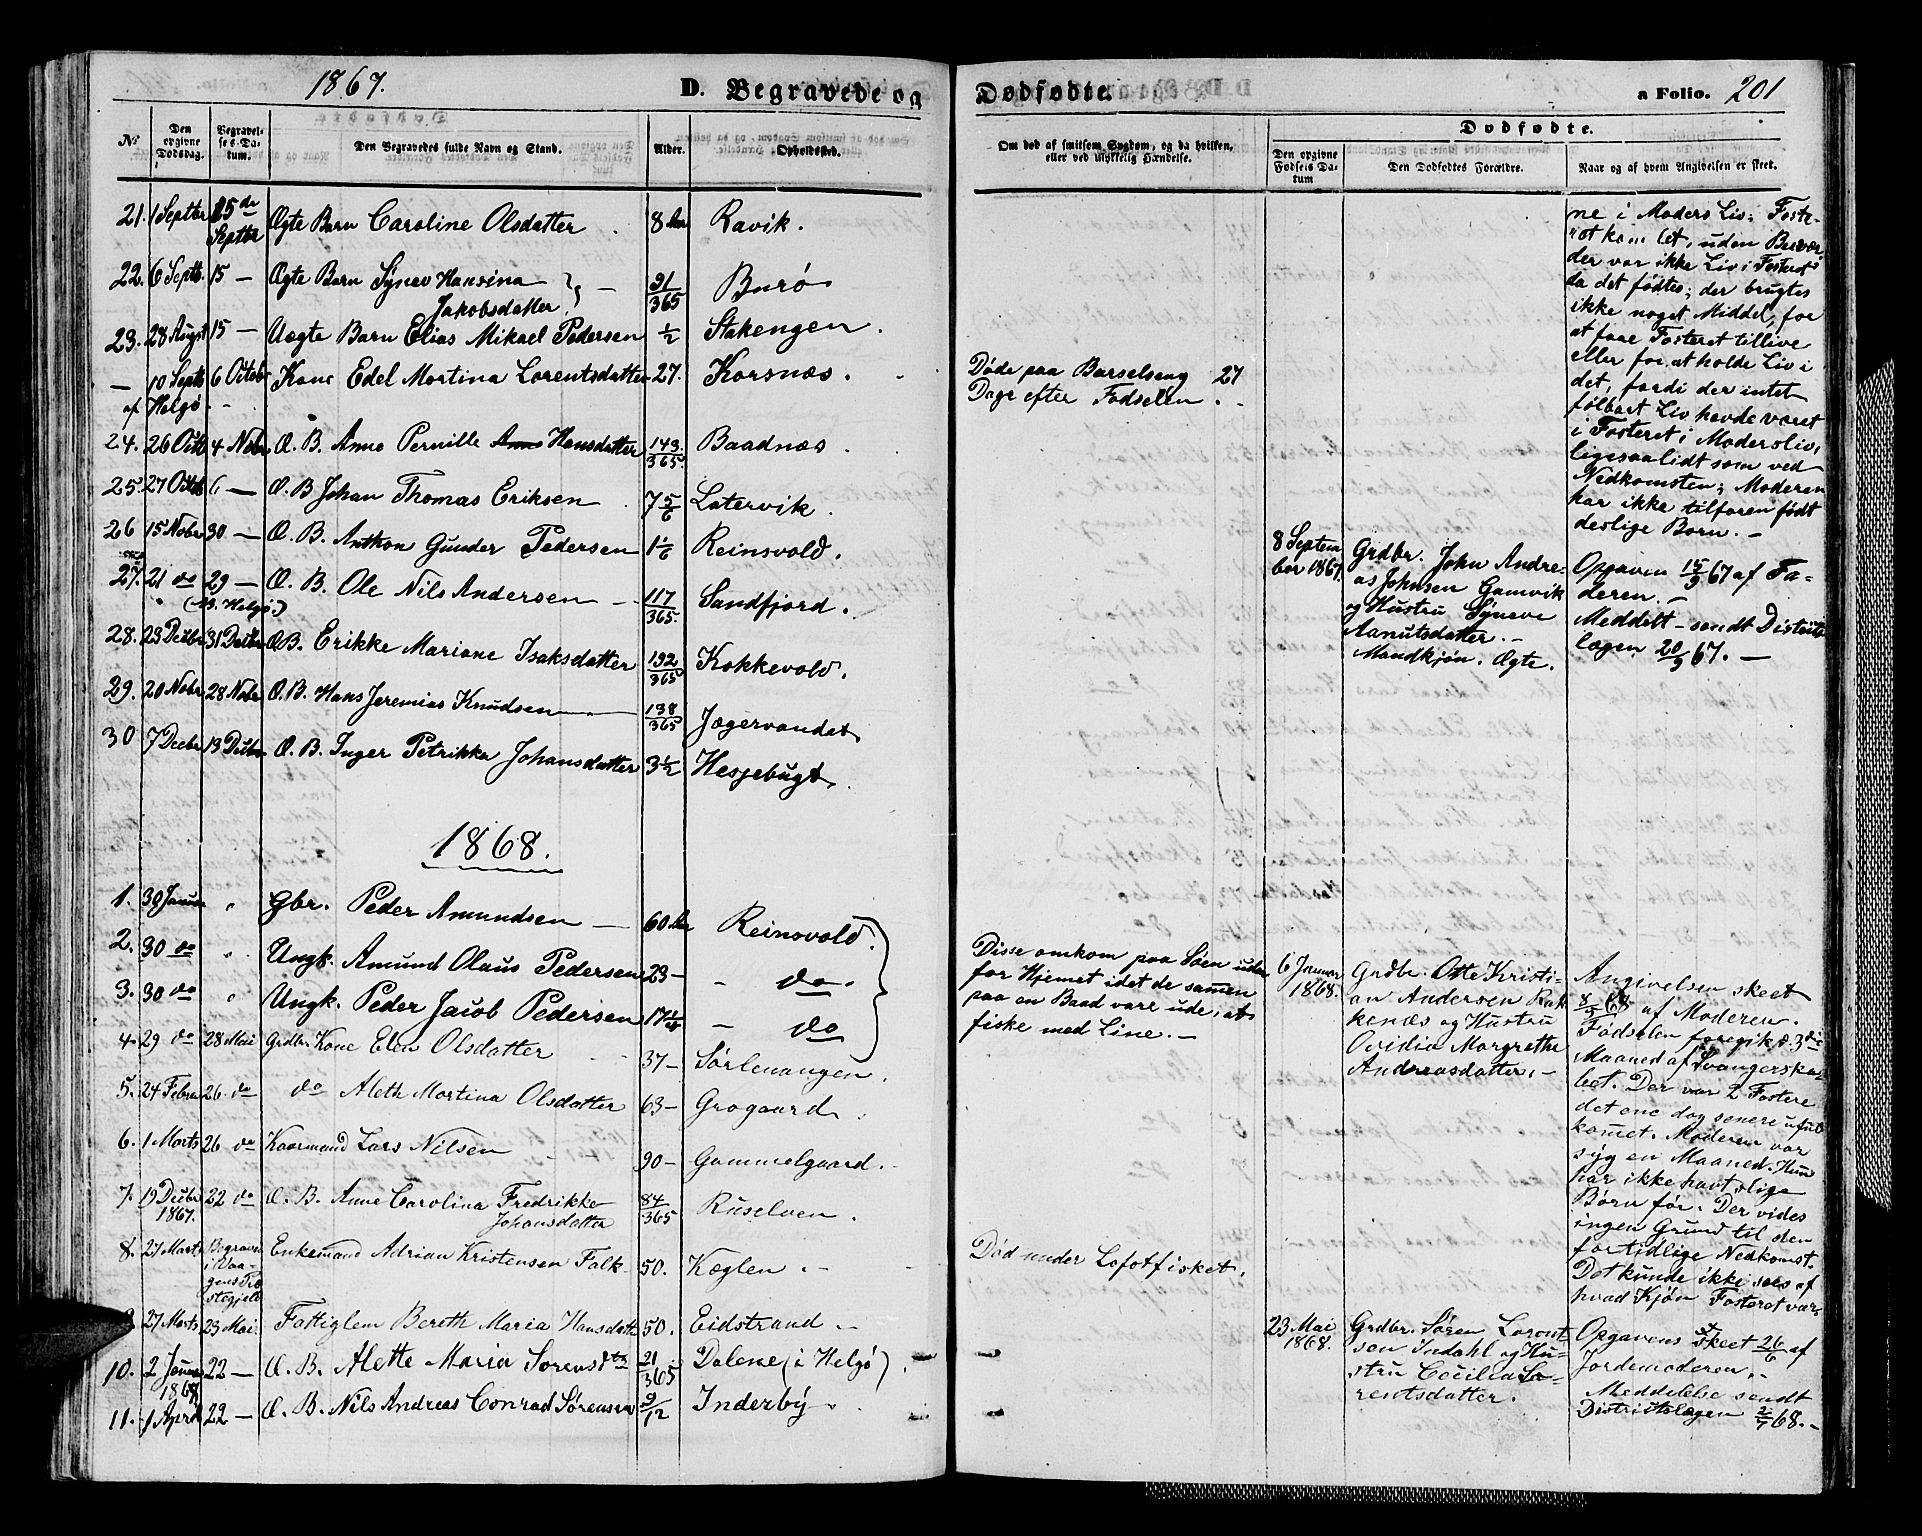 1867.
D. Begravede og
Dødfødte.
a Folio. 201
No
Den opgivne Dødsdag.
Begravelses Datum.
Den Begravedes fulde Navn og Stand.
Alder.
Opholdssted.
Om død af smitsom Sygdom, og da hvilken, eller ved ulykkelig Hændelse.
Dødfødte.
Den opgivne Fødsels Datum
Den Dødfødtes Forældre.
Naar og af hvem Angivelsen er skeet.
21. 1 Septbr 15de Septbr Ægte Barn Caroline Olsdatter 8 Aar Ravik.
22. 6 Septb. 15 — Ægte Barn Synev Hansina Jakobsdatter 21/365 Burø
23. 28 Augst 15 — Uægte Barn Elias Mikael Pedersen ½ Stakengen.
— 10 Septb 6 Octob Kone Edel Martina Lorentsdatter 27. Korsnæs.
af Helgø
24. 26 Octb 4 Nobr Æ. B. Anne Pernille Hansdatter 143/365 Baadnæs
25. 27 Octob 6 — Æ. B Johan Thomas Eriksen 7 5/6 Latervik.
26 15 Nobr 30 — Æ. B. Anthon Gunder Pedersen 1 1/6 Reinsvold.
27. 21 do 29 — Æ. B. Ole Nils Andersen 117/365 Sandfjord.
28. 23 Decbr 31 Decbr Æ B. Erikke Mariane Isaksdatter 192/365 Kokkevold.
29. 20 Nobr 28 Nobr Æ. B. Hans Jeremias Knudsen 138/365 Jægervandet
30 7 Decbr 13 Decbr Æ. B. Inger Petrikke Johansdatter 3½ Hesjebugt
1868.
1. 30 Januar " Gbr. Peder Amundsen — 60 Aar Reinsvold.
2. 30 do " Ungk. Amund Olaus Pedersen 23 — do
3. 30 do " Ungk. Peder Jacob Pedersen 17 — do
4. 29 do 28 Mai Grdbr. Kone Elen Olsdatter 37 — Sørlenangen.
5. 24 Febru 26. do do Aleth Martina Olsdatter 63 — Grøgaard
6. 1 Marts 26 do Kaarmand Lars Nilsen 90 — Gammelgaard.
7. 19 Decbr 1867. 22 do Æ. B. Anne Carolina Fredrikke Johansdatter 84/365 Ruselven.
8. 27 Marts Begraven i Vaagens Præstegjeld Enkemand Adrian Kristensen Falk 50. Kæglen
27 Marts 23 Mai. Fattiglem Bereth Maria Hansdatt 50. Eidstrand
10. 2 Janua 1868 22 — Æ. B. Alette Maria Sørensdtr 21/365 Dalene (i Helgø).
11. 1 April 22 — Æ. B. Nils Andreas Conrad Sørensen 9/12 Inderby
Døde paa Barselseng 27
Dage efter Fødselen.
Disse omkom paa Søen uden
for Hjemmet idet de sammen
paa en Baad vare ude, at
fiske med Line. —
Død under Lofotfisket.
8 September 1867.
Grdbr. John Andre-
as Johnsen Gamvik
og Hustru Syneve
Aanutsdatter. —
Mandkjøn. Ægte.
6 Januar 1868.
Grdbr. Otte Kristi-
an Andersen Rak-
kenæs og Hustru
Ovidia Margrethe
Andreasdatter. —
23 Mai 1868.
Grdbr. Søren Lorent-
sen Indahl og Hu-
stru Cecilia Lo-
rentsdatter.
ne i Moders Liv. Foste-
ret kom let, uden Besvær
der var ikke Liv i Fosteret
da det fødtes; der brugtes
ikke noget Middel, for
at faae Fosteret tillive
eller for at holde Liv i
det, fordi der intet
følbart Liv havde været
i Fosteret i Modersliv,
ligesaalidt som ved
Nedkomsten; Moderen
har ikke tilforen født
deslige Børn. —
Opgaven 15/9 67 af Fa-
deren. —
Meddelt — sendt Districts
lægen 20/9 67. —
Angivelsen skeet
8/3 68 af Moderen.
Fødselen foregik d. 3die
Maaned af Svangerska-
bet. Der var 2 Fostere
det ene dag senere
kommet. Moderen var
syg en Maaned. Hun
har ikke havt slige
Børn før. Der vides
ingen Grund til den
fortidlige Nedkomst.
Det kunde ikke sees af
hvad Kjøn Fosteret var.
Opgavens skeet 26/6 af
Jordemoderen.
Meddelelse sendt
Districtslægen 2/7 68. —